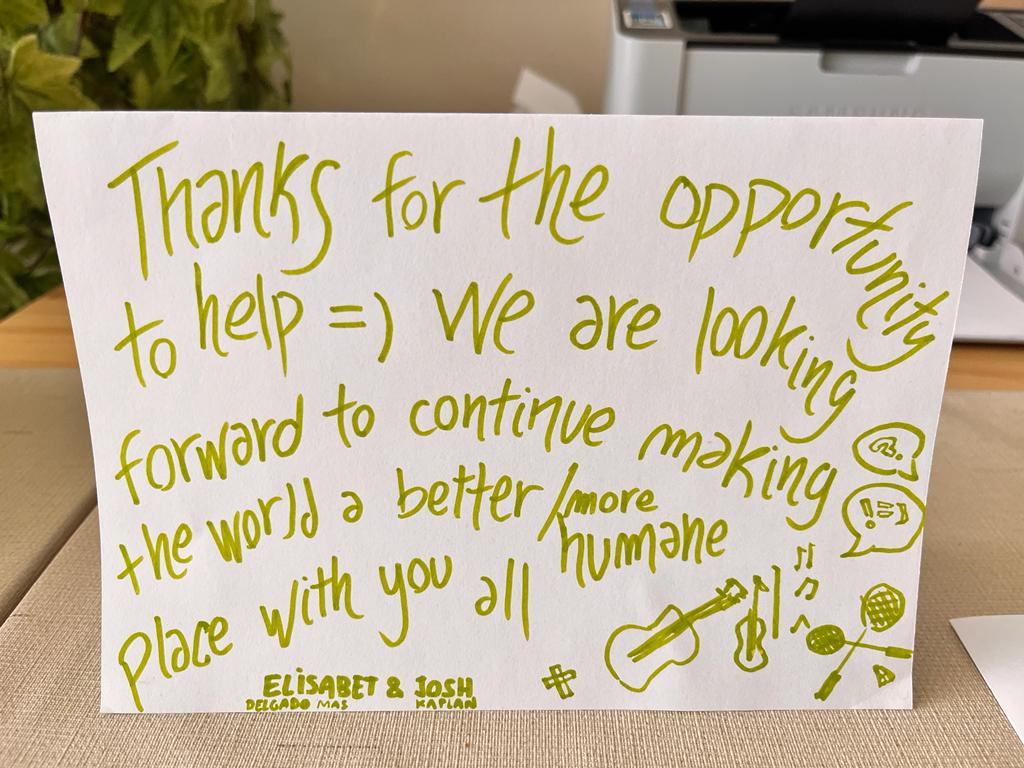 Thanks for the opportunity
to help =) We are looking
forward to continue making
the world a better/more
humane
place with you all
ELISABET & JOSH
DELGADO MAS KAPLAN